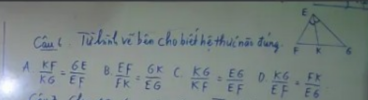 Câu 6. Từ hình vẽ bên cho biết hệ thức nào đúng.
E
F K G
A. KF/KG = GE/EF B. EF/FK = GK/EG C. KG/KF = EG/EF D. KG/EF = FK/EG